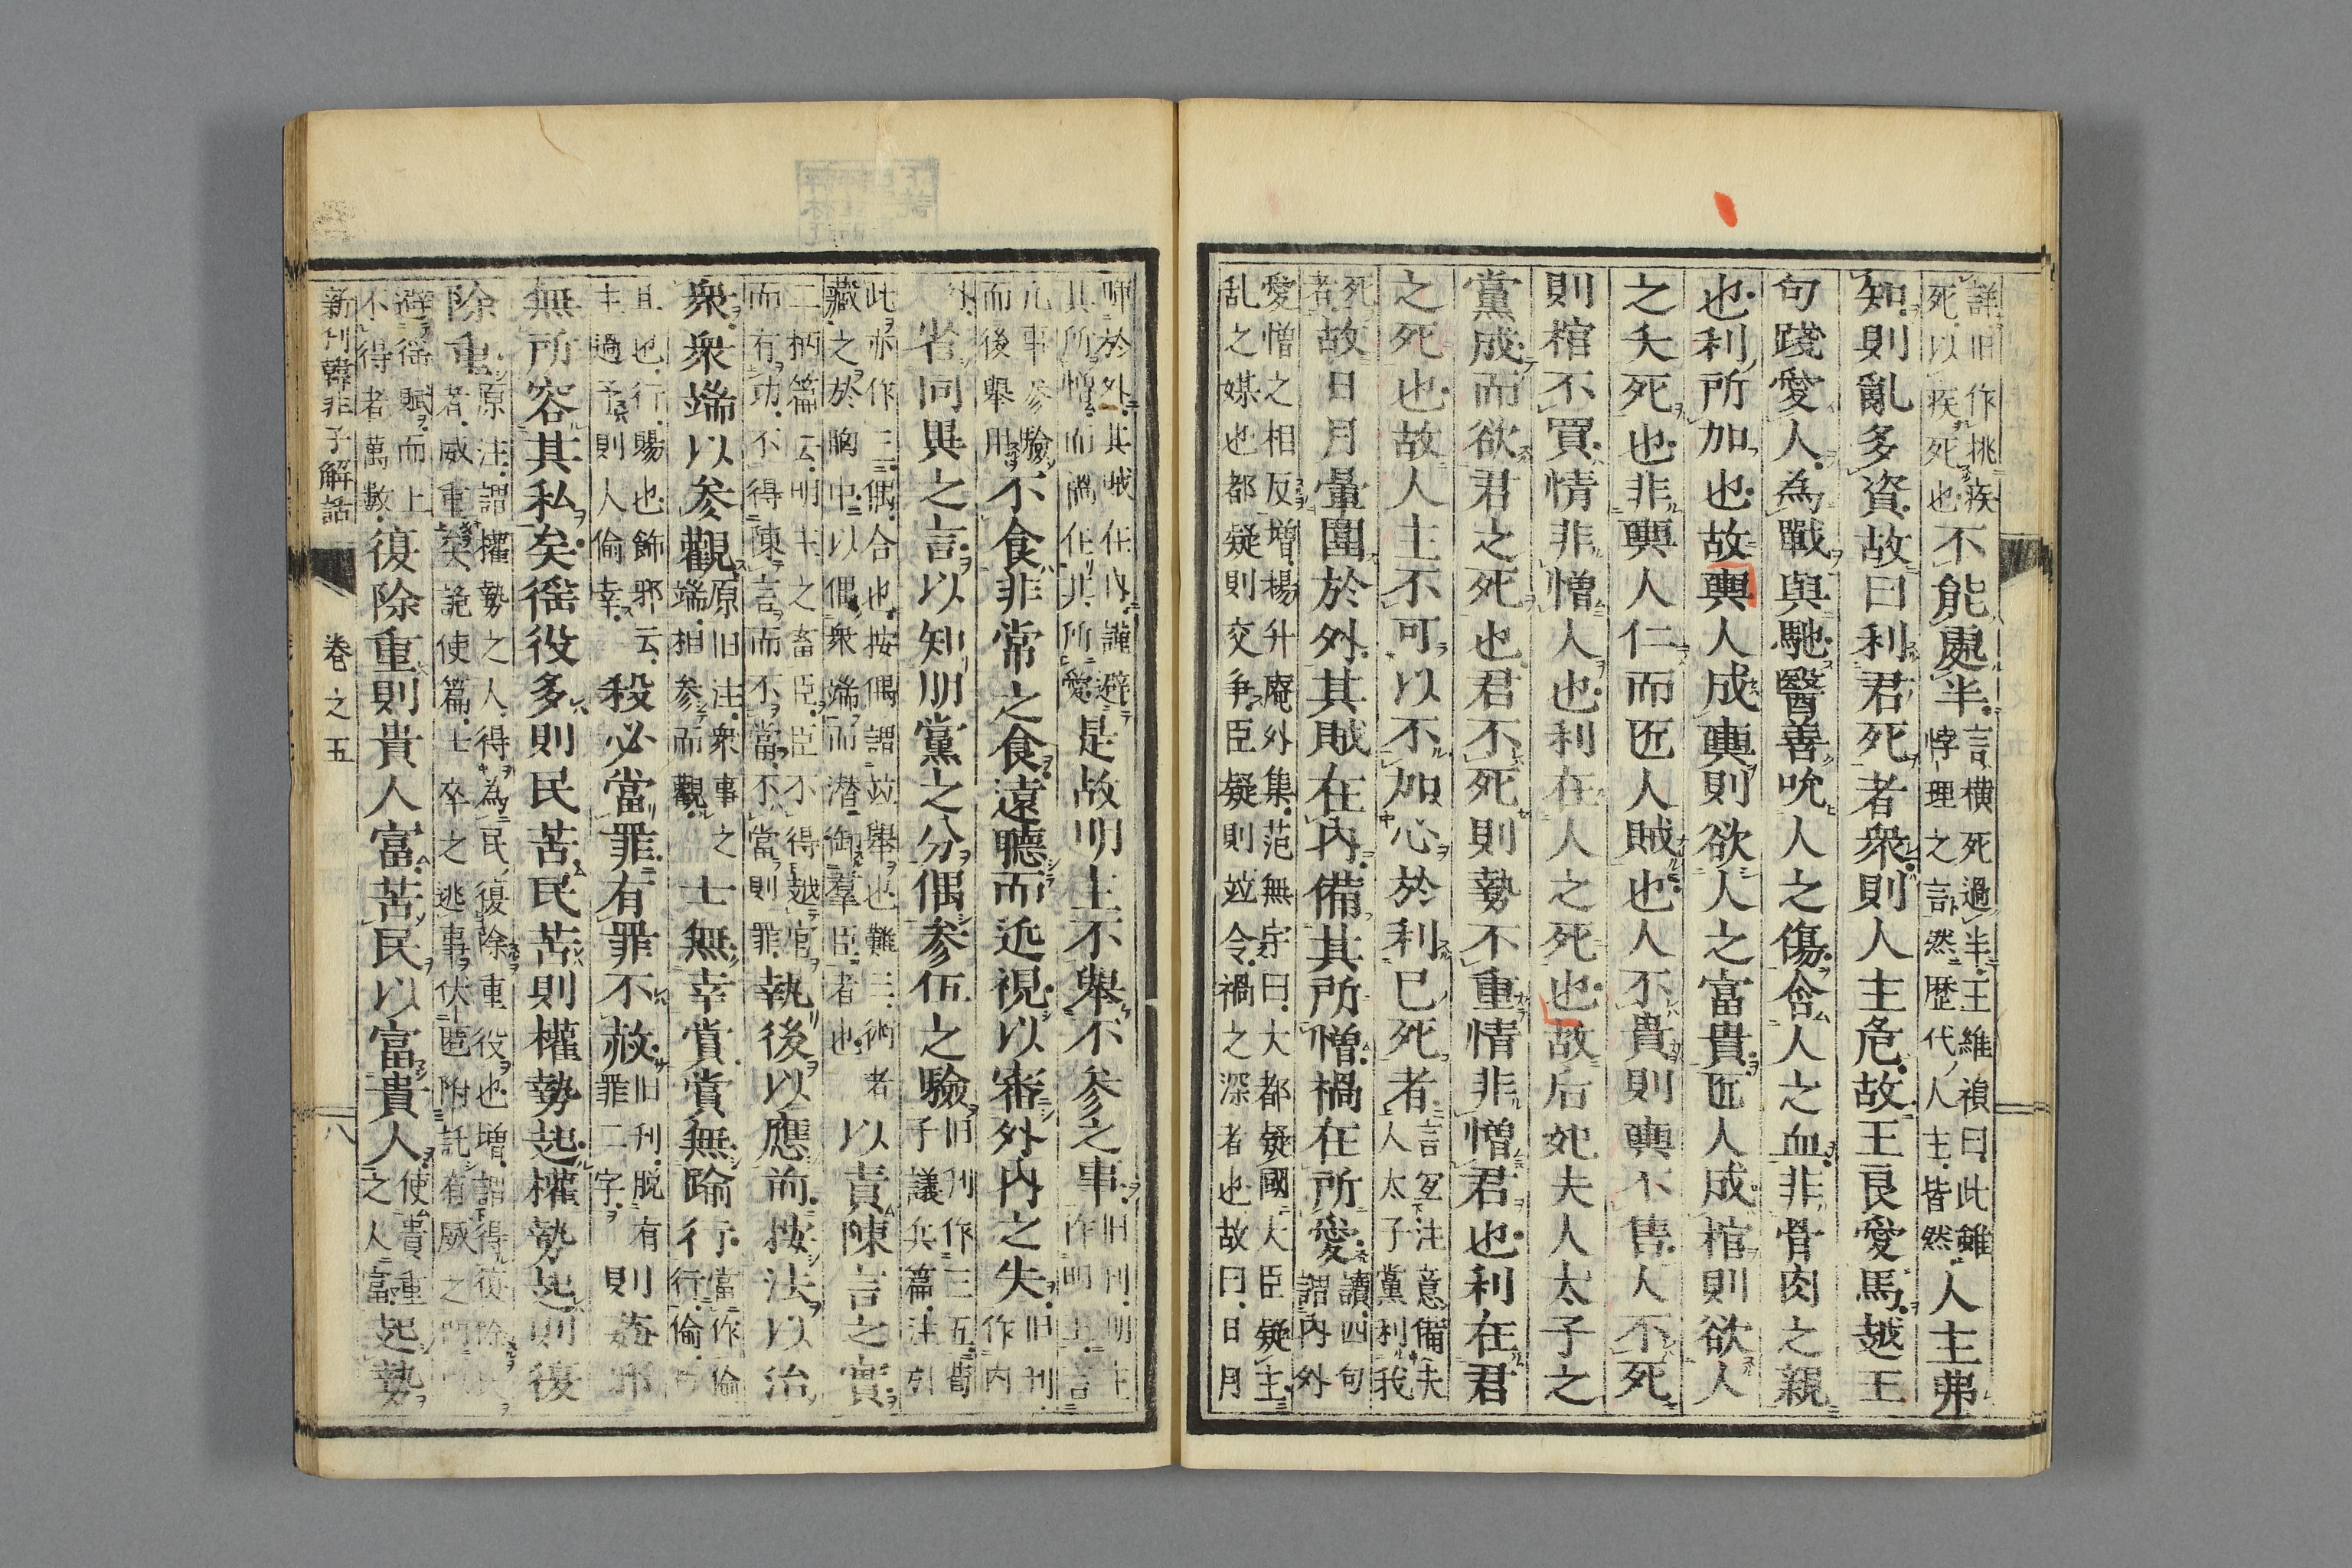 詳旧作挑疾
死以疾死也不能處半言橫死過半王維禎曰此雖
悖理之言然歷代人主皆然人主弗
知則亂多資故曰利君死者衆則人主危故王良愛馬越王
句踐愛人為戰與馳醫善吮人之傷含人之血非骨肉之親
也利所加也故輿人成輿則欲人之富貴匠人成棺則欲人
之夭死也非輿人仁而匠人賊也人不貴則輿不售人不死
則棺不買情非憎人也利在人之死也故后妃夫人太子之
黨成而欲君之死也君不死則勢不重情非憎君也利在君
之死也故人主不可以不加心於利己死者言宜注意備夫
人太子黨利我
死者故日月暈圍於外其賊在內備其所憎禍在所愛讀四句
謂內外
愛憎之相反增楊升庵外集范無宇曰大都疑國大臣疑主
乱之媒也都疑則交爭臣疑則竝令禍之深者也故曰日月
暉於外其賊在內謹避
其所憎而禍在非所愛是故明主不舉不參之事旧刊明主
作明王言
凡事參驗
而後舉用不食非常之食遠聽而近視以審外內之失旧刊
作內
外省同異之言以知朋黨之分偶參伍之驗旧刊作三五荀
子議兵篇注引
此亦作三偶合也按偶謂竝舉也難三術者
藏之於胸中以偶衆端而潛御羣臣者也以責陳言之實
二柄篇云明主之畜臣臣不得越官
而有功不得陳言而不當不當則罪執後以應前按法以治
衆衆端以參觀原旧注衆事之
端相參而觀士無幸賞賞無踰行當作偷
行偷
且也行賜也飾邪云
主過予則人偷幸殺必當罪有罪不赦旧刊脫有
罪二字則姦邪
無所容其私矣徭役多則民苦民苦則權勢起權勢起則復
除重原注謂權勢之人得為民復除重役也增謂得復除
者威重矣詭使篇士卒之逃事伏匿附託有威之門
避徭賦而上
不得者萬數復除重則貴人富苦民以富貴人使貴重
之人富起勢
新刊韓非子解詁 卷之五 八